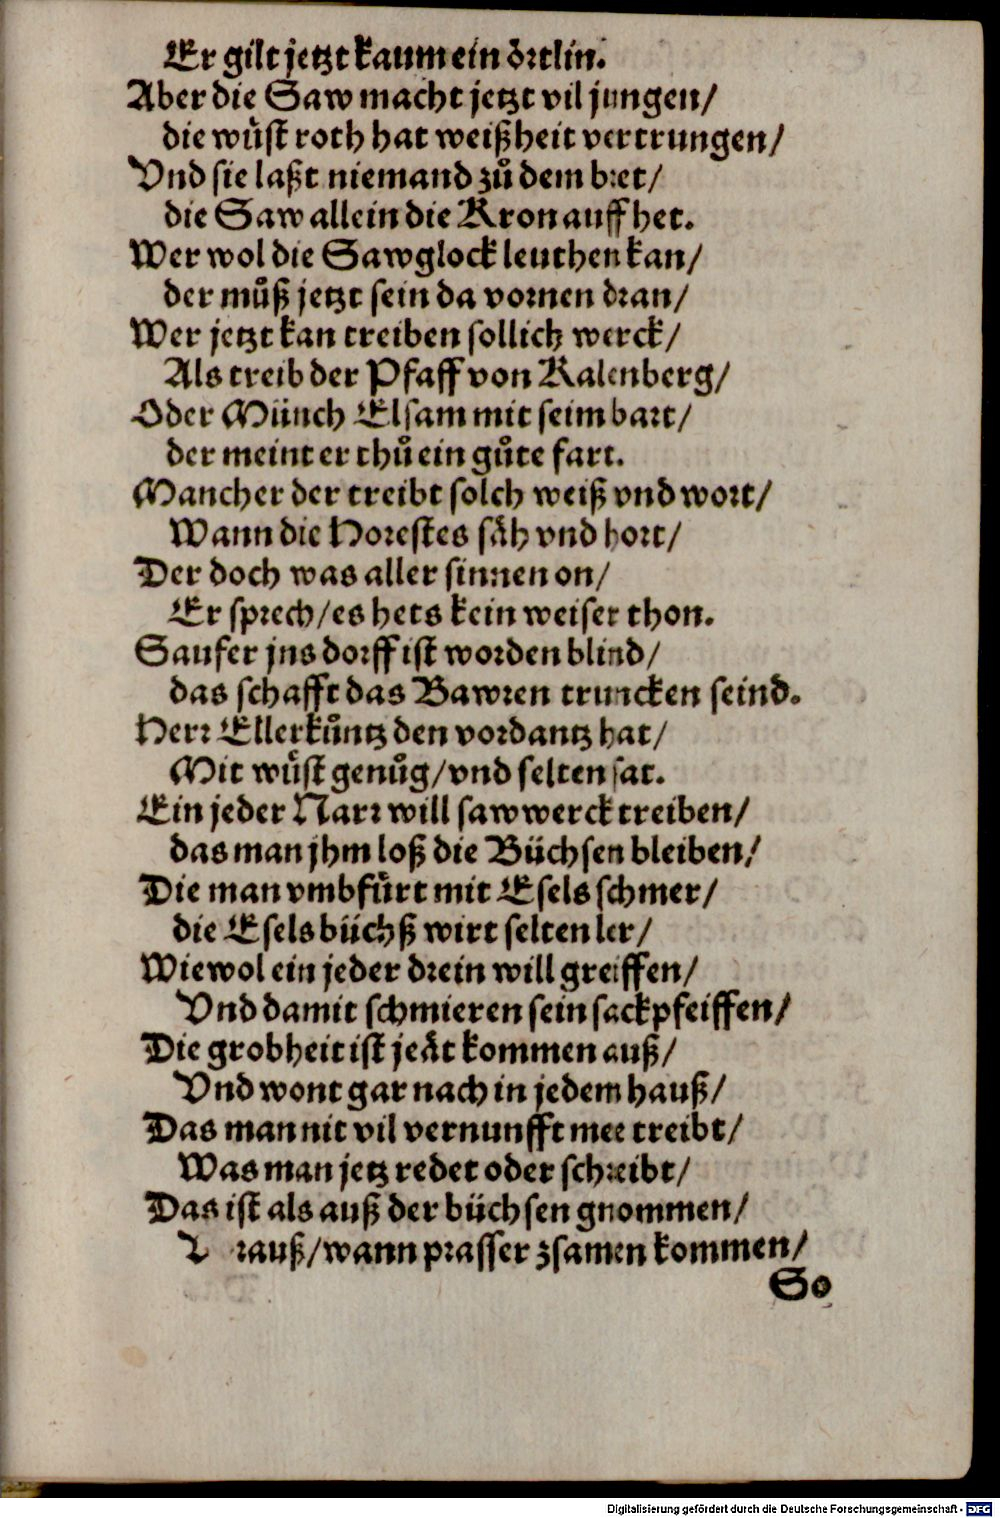 Er gilt jetzt kaum ein örtlin.
Aber die Saw macht jetzt vil jungen/
die wüst roth hat weißheit vertrungen/
Vnd sie laßt niemand zů dem bret/
die Saw allein die Kron auff het.
Wer wol die Sawglock leuthen kan/
der můß jetzt sein da vornen dran/
Wer jetzt kan treiben sollich werck/
Als treib der Pfaff von Kalenberg/
Oder Münch Elsam mit seim bart/
der meint er thů ein gůte fart.
Mancher der treibt solch weiß vnd wort/
Wann die Horestes säh vnd hort/
Der doch was aller sinnen on/
Er sprech/es hets kein weiser thon.
Saufer jns dorff ist worden blind/
das schafft das Bawren truncken seind.
Herr Ellerkůntz den vordantz hat/
Mit wüst genůg/vnd selten sat.
Ein jeder Narr will saw werck treiben/
das man jhm loß die Büchsen bleiben/
Die man vmbfürt mit Esels schmer/
die Esels büchß wirt selten ler/
Wiewol ein jeder drein will greiffen/
Vnd damit schmieren sein sackpfeiffen/
Die grobheit ist jeät kommen auß/
Vnd wont gar nach in jedem hauß/
Das man nit vil vernunfft mee treibt/
Was man jetz redet oder schreibt/
Das ist als auß der büchsen gnommen/
rauß/wann prasser zsamen kommen/
So
Digitalisierung gefördert durch die Deutsche Forschungsgemeinschaft - DFG